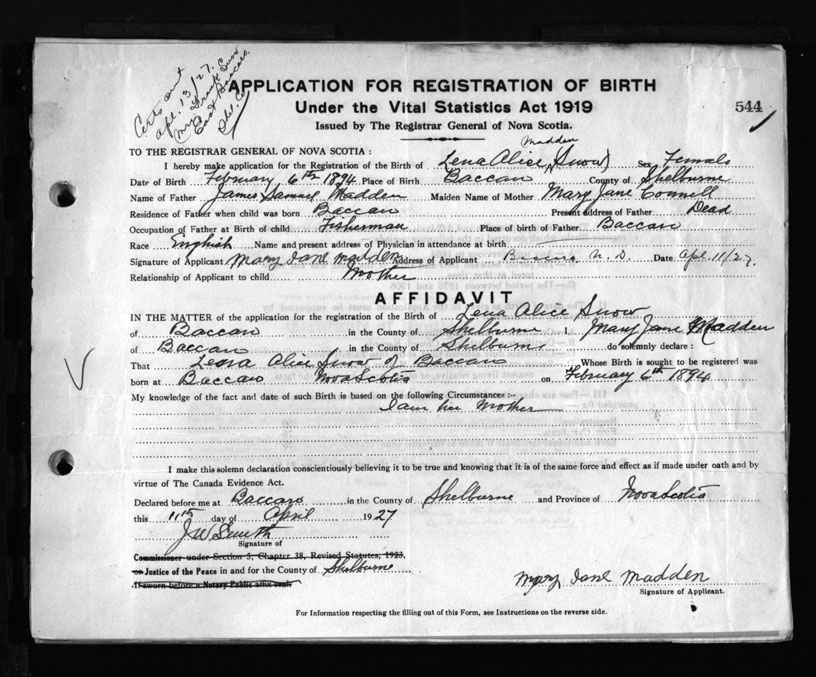 Certs out
Apl. 13/27.
Mrs Snow
East Baccaro
Shel. Co
APPLICATION FOR REGISTRATION OF BIRTH
Under the Vital Statistics Act 1919
544
Issued by The Registrar General of Nova Scotia.
Madden
TO THE REGISTRAR GENERAL OF NOVA SCOTIA :
I hereby make application for the Registration of the Birth of Lena Alice Snow Sex Female
Date of Birth February 6th 1894 Place of Birth Baccaro County of Shelburne
Name of Father James Samuel Madden Maiden Name of Mother Mary Jane Connell
Residence of Father when child was born Baccaro Present address of Father Dead
Occupation of Father at Birth of child Fisherman Place of birth of Father Baccaro
Race English Name and present address of Physician in attendance at birth
Signature of Applicant Mary Jane Madden Address of Applicant N.S. Date Apl. 11/27.
Relationship of Applicant to child Mother
AFFIDAVIT
IN THE MATTER of the application for the registration of the Birth of Lena Alice Snow
of Baccaro in the County of Shelburne I, Mary Jane Madden
of Baccaro in the County of Shelburne do solemnly declare :
That Lena Alice Snow of Baccaro Whose Birth is sought to be registered was
born at Baccaro Nova Scotia on February 6th 1894
My knowledge of the fact and date of such Birth is based on the following Circumstances :-
I am her Mother
I make this solemn declaration conscientiously believing it to be true and knowing that it is of the same force and effect as if made under oath and by
virtue of The Canada Evidence Act.
Declared before me at Baccaro in the County of Shelburne and Province of Nova Scotia
this 11th day of April 1927
J W Smith
Signature of
Commissioner under Section 5, Chapter 38, Revised Statutes, 1923,
or Justice of the Peace in and for the County of Shelburne
If sworn before a Notary Public affix seal.
Mary Jane Madden
Signature of Applicant.
For Information respecting the filling out of this Form, see Instructions on the reverse side.